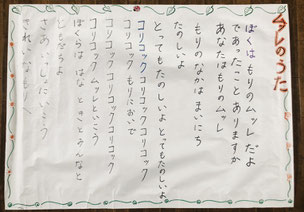 ムッレのうた
ぼくは もりのムッレ だよ
であったこと ありますか
あなたは もりのムッレ
もりのなかは まいにち
たのしいよ
とってもたのしいよ とってもたのしいよ
コリコック コリコック コリコック
コリコック もりにおいで
コリコック コリコック コリコック
コリコック ムッレといこう
ぼくらは はな とり みんなと
ともだちよ
さあ いっしょに いこう